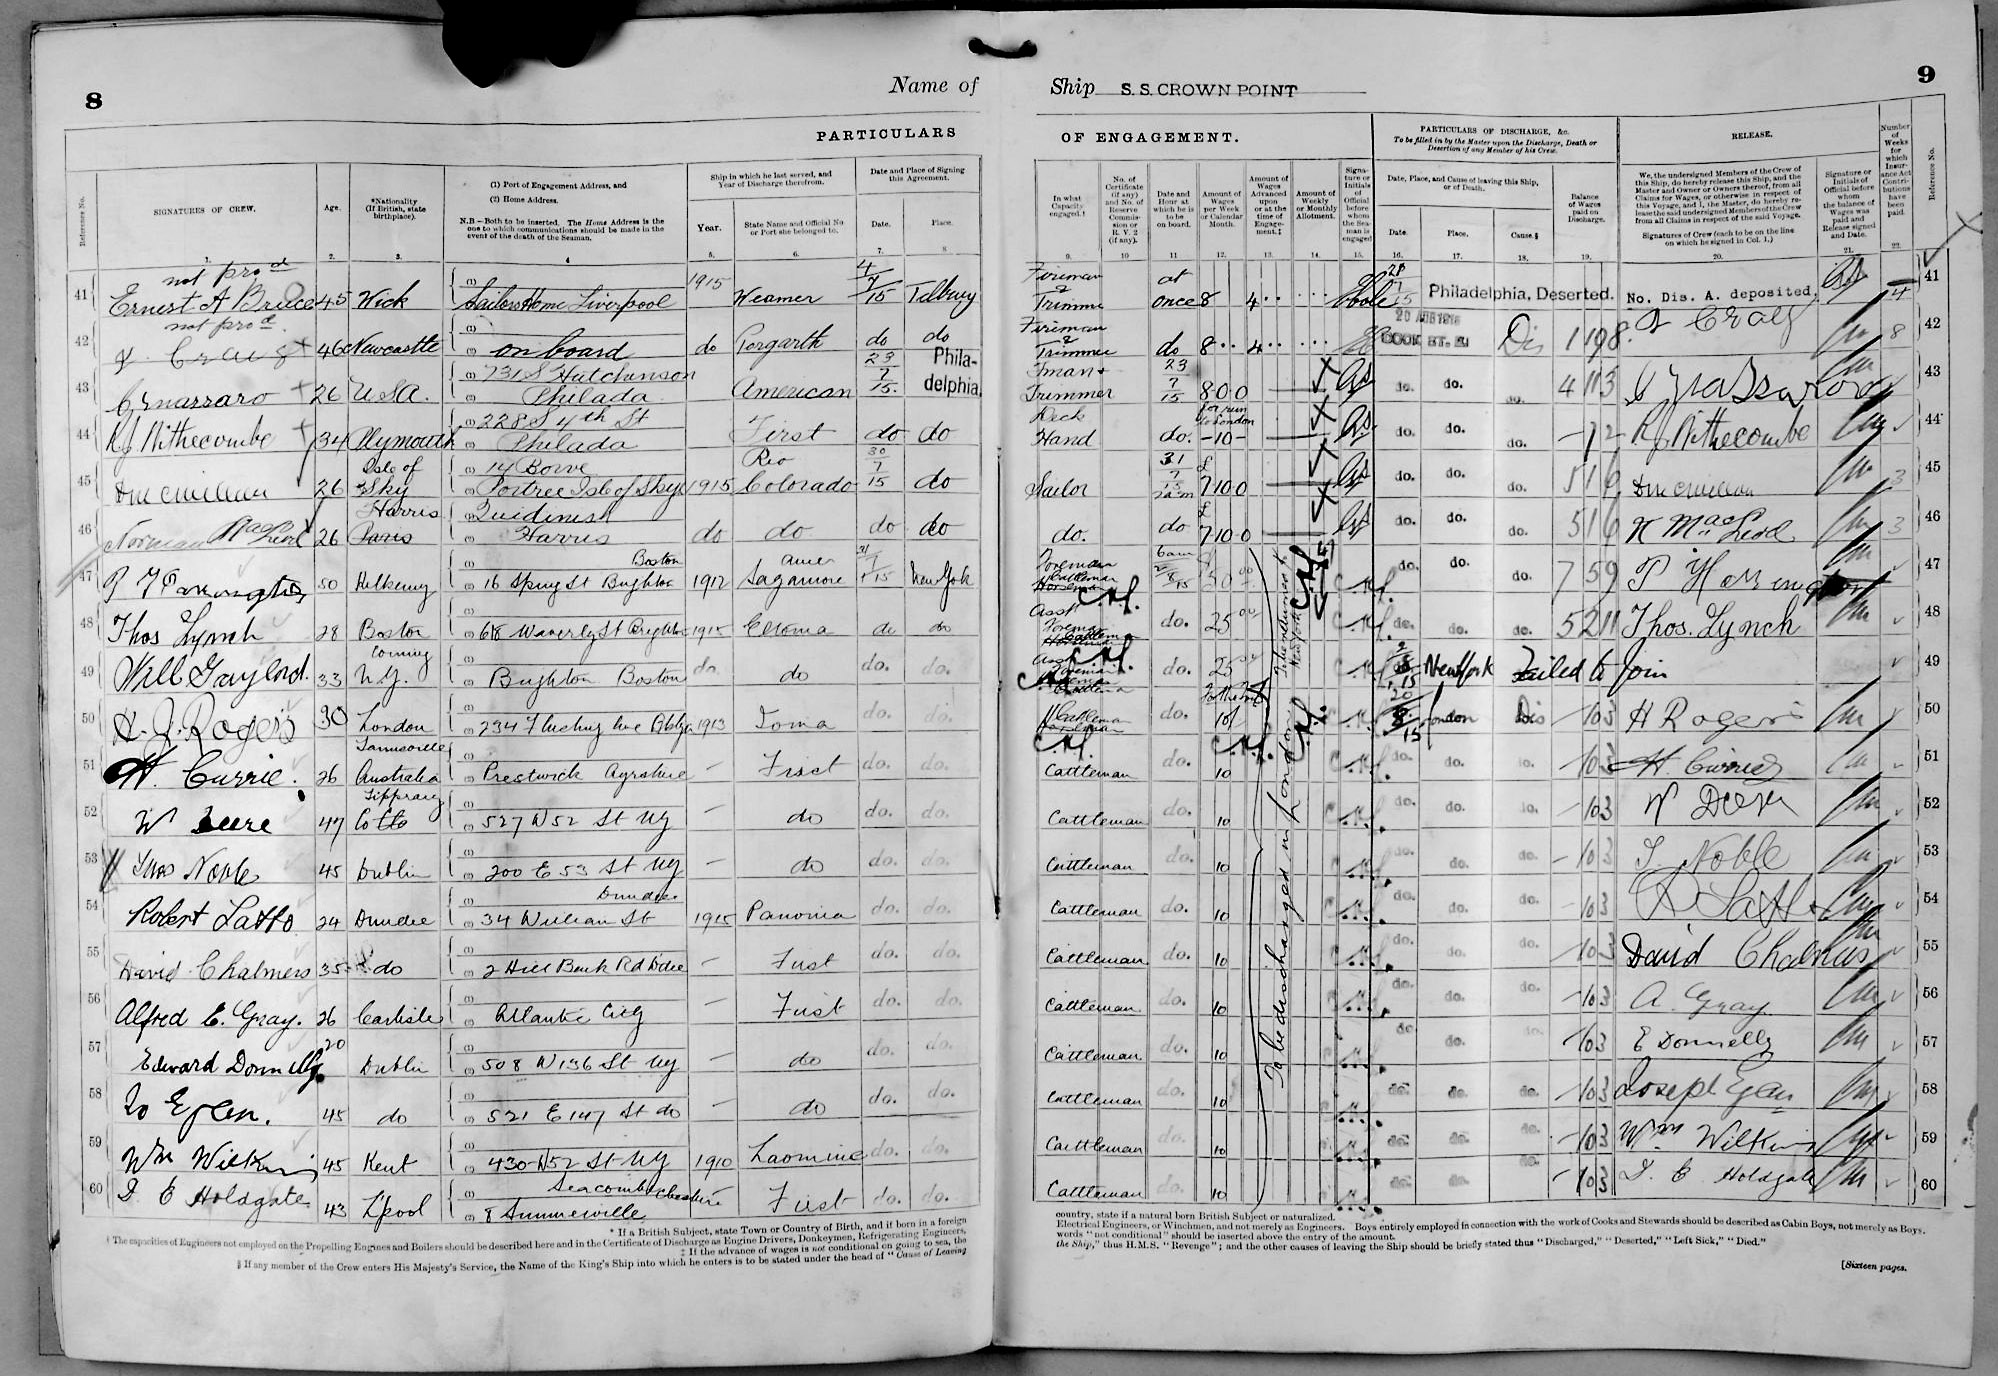 8
Name of
Ship S.S. CROWN POINT
9
PARTICULARS
OF ENGAGEMENT.
PARTICULARS OF DISCHARGE, &c.
To be filled in by the Master upon the Discharge, Death or Desertion of any Member of his Crew.
RELEASE.
Reference No.
SIGNATURES OF CREW.
Age.
*Nationality (If British, state birthplace).
(1) Port of Engagement Address, and
(2) Home Address.
N.B.—Both to be inserted. The Home Address is the one to which communications should be made in the event of the death of the Seaman.
Ship in which he last served, and Year of Discharge therefrom.
Year.
State Name and Official No. or Port she belonged to.
Date and Place of Signing this Agreement.
Date.
Place.
In what Capacity engaged.†
No. of Certificate (if any) and No. of Reserve Commission or R. V. 2 (if any).
Date and Hour at which he is to be on board.
Amount of Wages per Week or Calendar Month.
Amount of Wages Advanced upon or at the time of Engagement.‡
Amount of Weekly or Monthly Allotment.
Signature or Initials of Official before whom the Seaman is engaged
Date, Place, and Cause of leaving this Ship, or of Death.
Date.
Place.
Cause.§
Balance of Wages paid on Discharge.
We, the undersigned Members of the Crew of this Ship, do hereby release this Ship, and the Master and Owner or Owners thereof, from all Claims for Wages, or otherwise in respect of this Voyage, and I, the Master, do hereby release the said undersigned Members of the Crew from all Claims in respect of the said Voyage.
Signatures of Crew (each to be on the line on which he signed in Col. 1.)
Signature or Initials of Official before whom the balance of Wages was paid and Release signed and Date.
Number of Weeks for which Insurance Act Contributions have been paid.
Reference No.
1. 2. 3. 4 5. 6. 7. 8
9. 10 11 12. 13. 14. 15. 16. 17. 18. 19. 20. 21. 22.
41 not prod Ernest A Bruce 45 Wick Sailors Home Liverpool 1915 Weamer 4/7/15 Tilbury Fireman & Trimmer at once 8 4 Philadelphia, Deserted. No. Dis. A. deposited. 4 41
42 not prod Craig 46 Newcastle on board do do do Fireman & Trimmer do 8 4 20 AUG 1915 Dis 1 19 8 Craig 8 42
43 26 USA. 731 S Hutchinson Philada American 23/7/15 Philadelphia Fman + Trimmer 23/7/15 8-0-0 do. do. do. 4 11 3 43
44 R J Withecombe 34 Plymouth 228 S 4th St Philada First do do Deck Hand do. for run to London -10- do. do. do. R J Withecombe 44
45 26 Isle of Sky Portree Isle of Skye 1915 Rio Colorado 30/7/15 do Sailor 31/7/15 £ 7-10-0 do. do. do. 5 1 6 3 45
46 Norman MacLeod 26 Harris Quidinish Harris do do do do do. do £ 7-10-0 do. do. do. 5 1 6 N MacLeod 3 46
47 50 Kilkenny Boston 16 Spring St Brighton 1912 Sagamore 31/7/15 New York Foreman Cattleman 6am do. do. do. 7 5 9 47
48 Thos Lynch 28 Boston 618 Waverly St Brighton 1915 do do Asst Foreman do. 25 00 do. do. do. 5 2 11 Thos. Lynch 48
49 Will Gaylord. 33 Corning N.Y. Brighton Boston do. do do. do. Asst Foreman do. 25 New York Failed to Join 49
50 H. J. Rogers 30 London 1913 Iona do. do. Cattleman do. 10/ London Dis 10 3 H Rogers 50
51 H. Currie. 26 Australia Prestwick Ayrshire — First do. do. Cattleman 10 do. do. do. 10 3 H. Currie 51
52 47 527 W 52 St NY — do do. do. Cattleman do. 10 do. do. do. 10 3 52
53 Thos Noble 45 Dublin 200 E 53 St NY — do do. do. Cattleman do. 10 do. do. do. 10 3 T. Noble 53
54 Robert Latto 24 Dundee 34 William St Dundee 1915 Panonia do. do. Cattleman do. 10 do. do. do. 10 3 R Latto 54
55 David Chalmers 35 do 2 Hill Bank Rd Ddee — First do. do. Cattleman do. 10 do. do. do. 10 3 David Chalmers 55
56 Alfred E. Gray. 26 Carlisle Atlantic City — First do. do. Cattleman do. 10 do. do. do. 10 3 A. Gray 56
57 Edward Donnelly 20 Dublin 508 W 136 St NY — do do. do. Cattleman do. 10 do do. do. 10 3 E Donnelly 57
58 Jo Egan. 45 do 521 E 147 St do — do do. do. Cattleman do. 10 do. do. do. 10 3 Joseph Egan 58
59 Wm Wilkins 45 Kent 430 W 52 St NY 1910 do. do. Cattleman do. 10 do. do. do. 10 3 Wm Wilkins 59
60 T E Holdgate 43 L'pool 8 Summerville Seacombe Cheshire — First do. do. Cattleman do. 10 do. do. do. 10 3 T. E Holdgate 60
To be discharged in London
* If a British Subject, state Town or Country of Birth, and if born in a foreign
country, state if a natural born British Subject or naturalized.
† The capacities of Engineers not employed on the Propelling Engines and Boilers should be described here and in the Certificate of Discharge as Engine Drivers, Donkeymen, Refrigerating Engineers,
Electrical Engineers, or Winchmen, and not merely as Engineers. Boys entirely employed in connection with the work of Cooks and Stewards should be described as Cabin Boys, not merely as Boys.
‡ If the advance of wages is not conditional on going to sea, the
words "not conditional" should be inserted above the entry of the amount.
§ If any member of the Crew enters His Majesty's Service, the Name of the King's Ship into which he enters is to be stated under the head of "Cause of Leaving
the Ship," thus H.M.S. "Revenge"; and the other causes of leaving the Ship should be briefly stated thus "Discharged," "Deserted," "Left Sick," "Died."
[Sixteen pages.